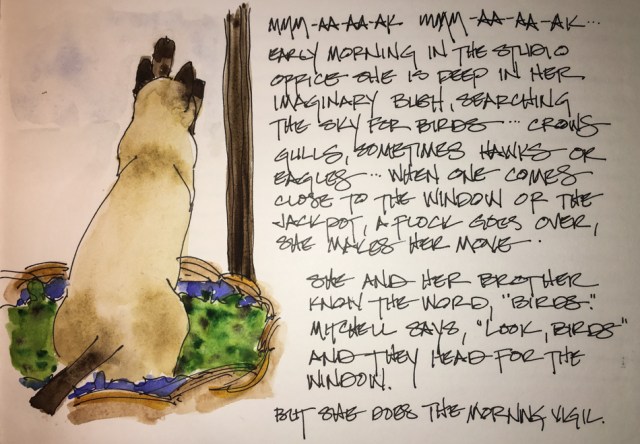 MMM-AA-AA-AK MMM-AA-AA-AK...
EARLY MORNING IN THE STUDIO
OFFICE SHE IS DEEP IN HER
IMAGINARY BUSH, SEARCHING
THE SKY FOR BIRDS ... CROWS
GULLS, SOMETIMES HAWKS OR
EAGLES ... WHEN ONE COMES
CLOSE TO THE WINDOW OR THE
JACKPOT, A FLOCK GOES OVER,
SHE MAKES HER MOVE.
SHE AND HER BROTHER
KNOW THE WORD, "BIRDS."
MITCHELL SAYS, "LOOK, BIRDS"
AND THEY HEAD FOR THE
WINDOW.
BUT SHE DOES THE MORNING VIGIL.